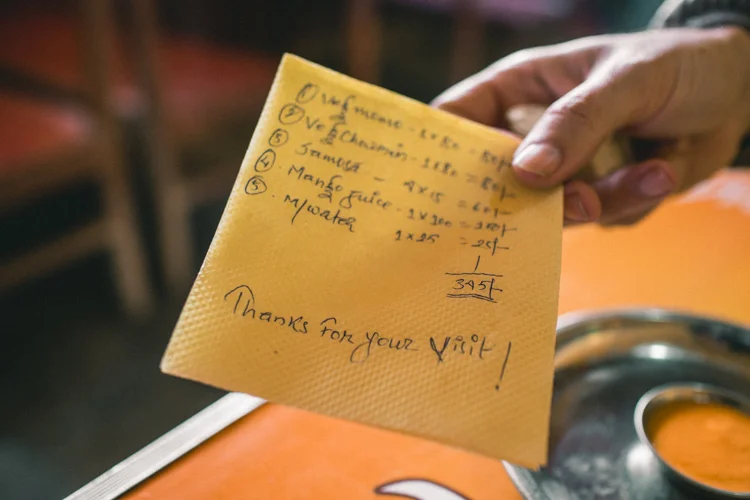 ① Veg momo - 1x80 = 80/-
② Veg Chowmin - 1x80 = 80/-
③ Samosa - 4x15 = 60/-
④ Mango Juice - 1x100 = 100/-
⑤ M/water 1x25 = 25/-
345/-
Thanks for your visit!